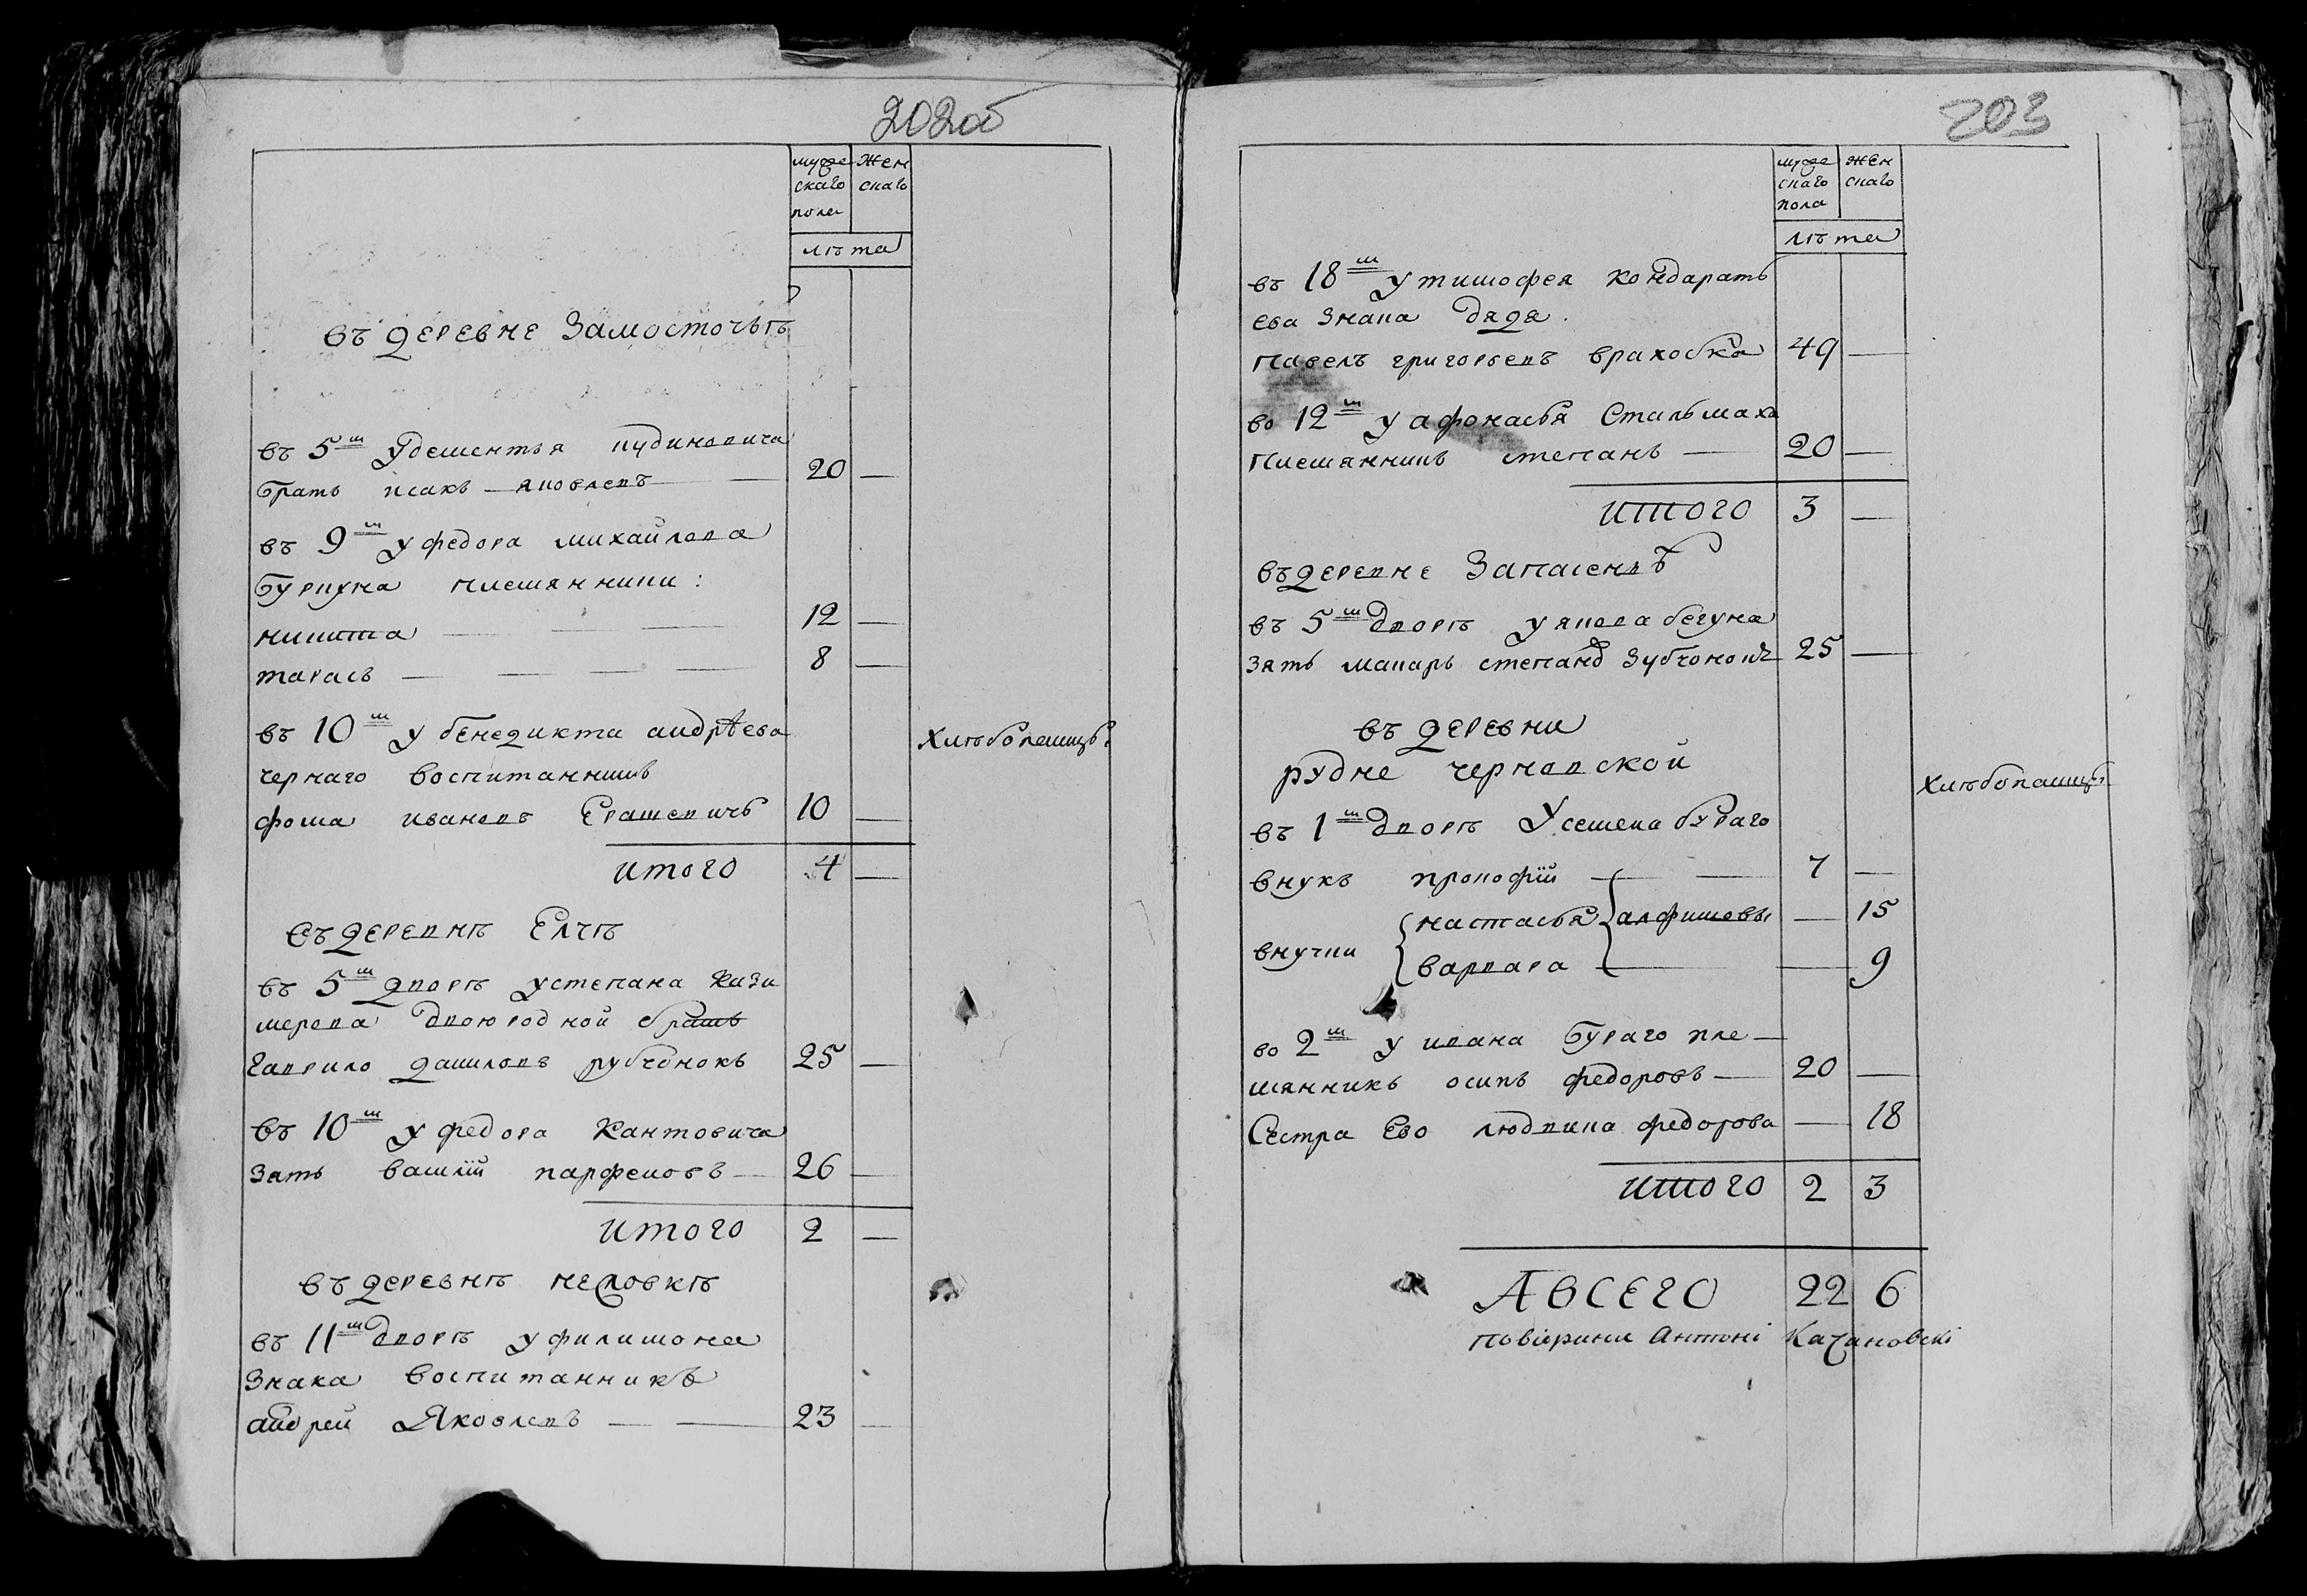 202об
мужескаго пола
женскаго
лѣта
въ деревне Замосточьѣ
въ 5м У дементья
братъ исакъ яковлевъ — 20 —
въ 9м у федора михайлова
буркуна племянники:
никита — 12 —
тарасъ — 8 —
въ 10м у бенедикта андрѣева
чернаго воспитанникъ
фома ивановъ Ерашевичъ 10 —
хлѣбопашцы
итого 4 —
въ деревнѣ Елчѣ
въ 5м дворѣ у степана кази
мерова двоюродной братъ
гаврило даниловъ рубчонокъ 25 —
въ 10м у федора кантовича
зять василій парфеновъ — 26 —
итого 2 —
въ деревнѣ
въ 11м дворѣ у филимона
знака воспитанникъ
андрей Яковлевъ — 23 —
203
мужескаго пола
женскаго
лѣта
въ 18м у тимофея кондрать
ева знака дядя.
павелъ григорьевъ 49 —
во 12м у афонасья стальмаха
племянникъ степанъ — 20 —
итого 3 —
въ деревне
въ 5м дворѣ у якова бегуна
зять макаръ степановъ зубчонокъ 25 —
въ деревни
рудне черневской
въ 1м дворѣ У семена бураго
внукъ прокофій — 7 —
внучки настасья алфимовы — 15
варвара — 9
хлѣбопашцы
во 2м у ивана бураго пле—
мянникъ осипъ федоровъ — 20 —
Сестра Ево людвика федорова — 18
итого 2 3
А ВСЕГО 22 6
повіерини Антоні Качановскі